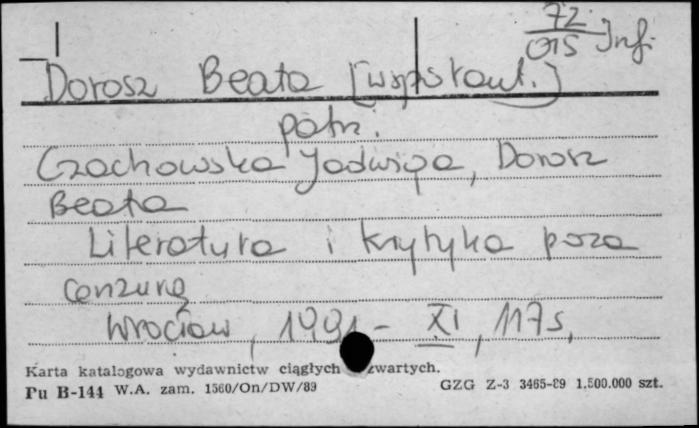 72
015 Inf.
Dorosz Beata [współaut.]
patrz.
Czachowska Jadwiga, Dorosz
Beata
Literatura i krytyka poza
cenzurą
Wrocław, 1991 - XI, 117s,
Karta katalogowa wydawnictw ciągłych zwartych.
Pu B-144 W.A. zam. 1560/On/DW/89 GZG Z-3 3465-89 1.500.000 szt.